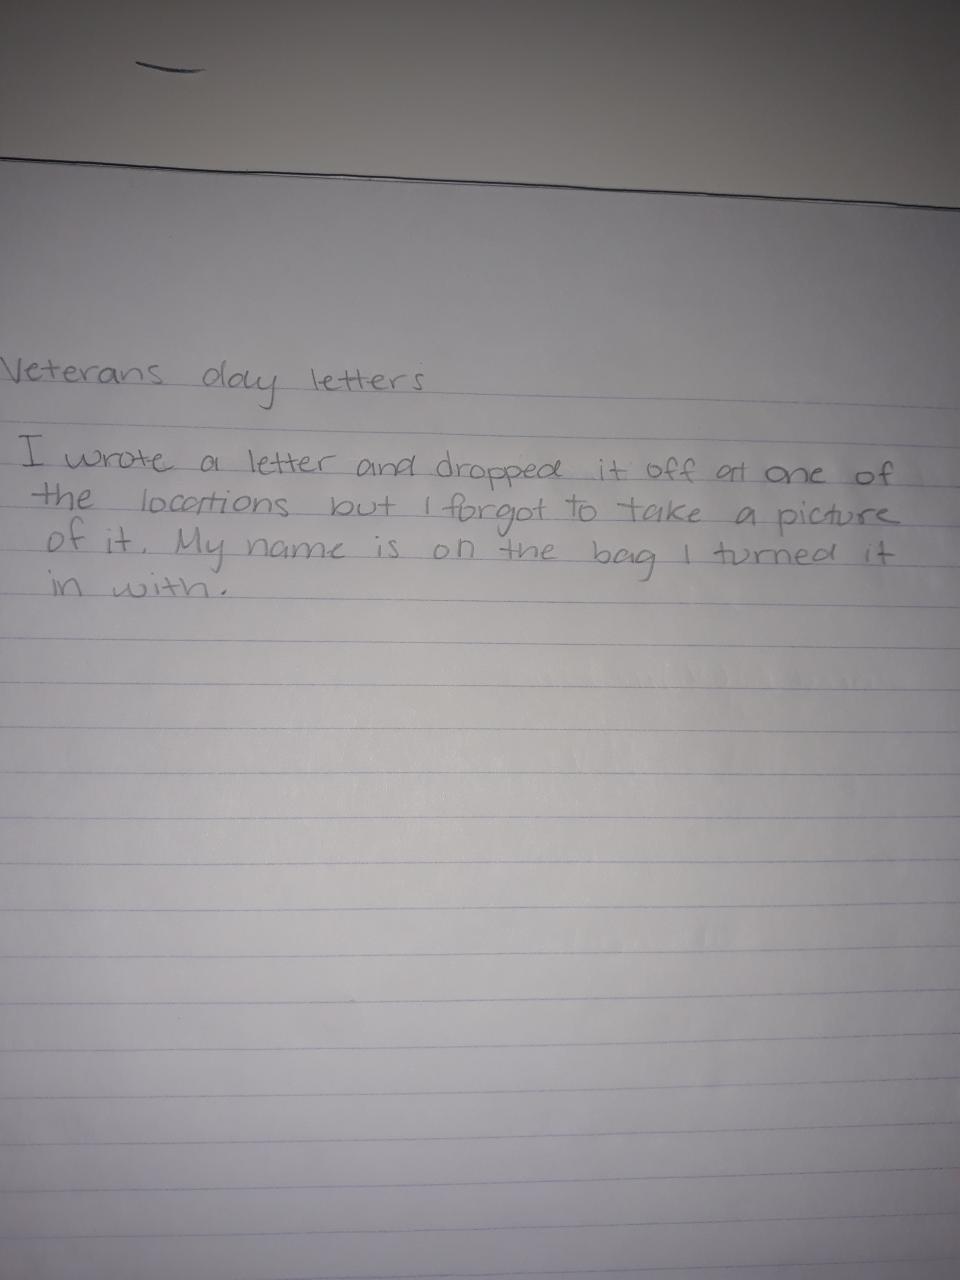 Veterans day letters
I wrote a letter and dropped it off at one of
the locations but I forgot to take a picture
of it. My name is on the bag I turned it
in with.